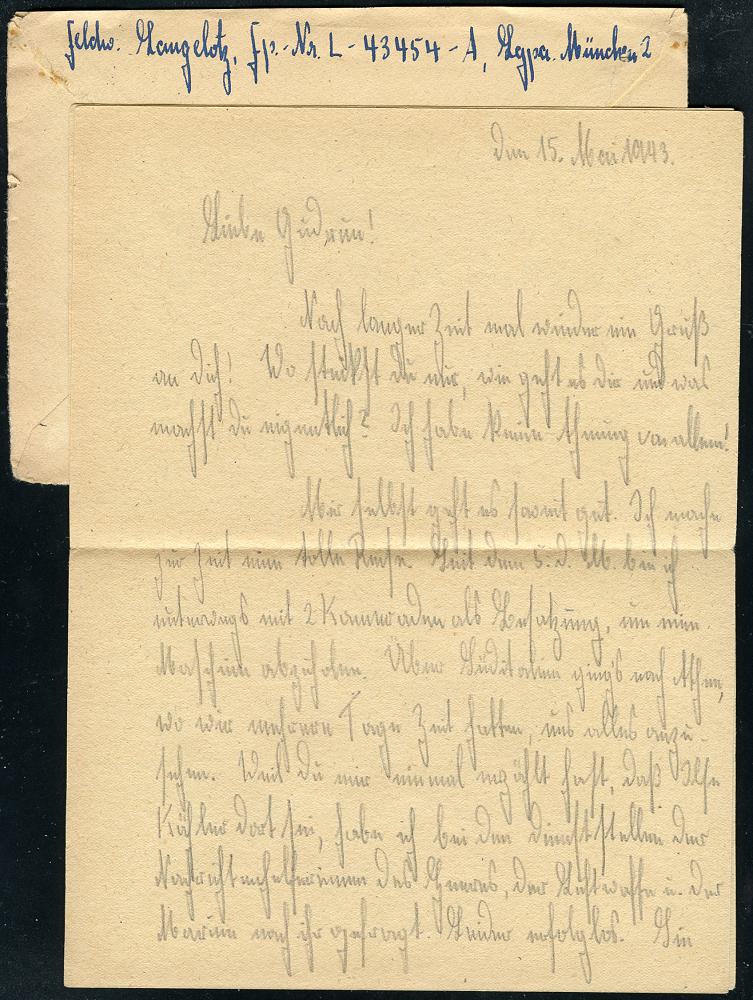 Feldw. Langelotz, Fp.-Nr. L-43454-A, Lgpa. München 2
Den 15. Mai 1943.
Liebe Gudrun!
Nach langer Zeit mal wieder ein Gruß
an Dich! Wo steckst Du nur, wie geht es Dir und was
machst Du eigentlich? Ich habe keine Ahnung von allem!
Mir selbst geht es soweit gut. Ich mache
zur Zeit eine tolle Reise. Seit dem 5. d. M. bin ich
unterwegs mit 2 Kameraden als Besatzung, um eine
Maschine abzuholen. Über Süditalien ging's nach Athen,
wo wir mehrere Tage Zeit hatten, uns alles anzu-
sehen. Weil Du mir einmal erzählt hast, daß Ilse
Kähler dort sei, habe ich bei den Dienststellen der
Nachrichtenhelferinnen des Heeres, der Luftwaffe u. der
Marine nach ihr gefragt. Leider erfolglos. Ein